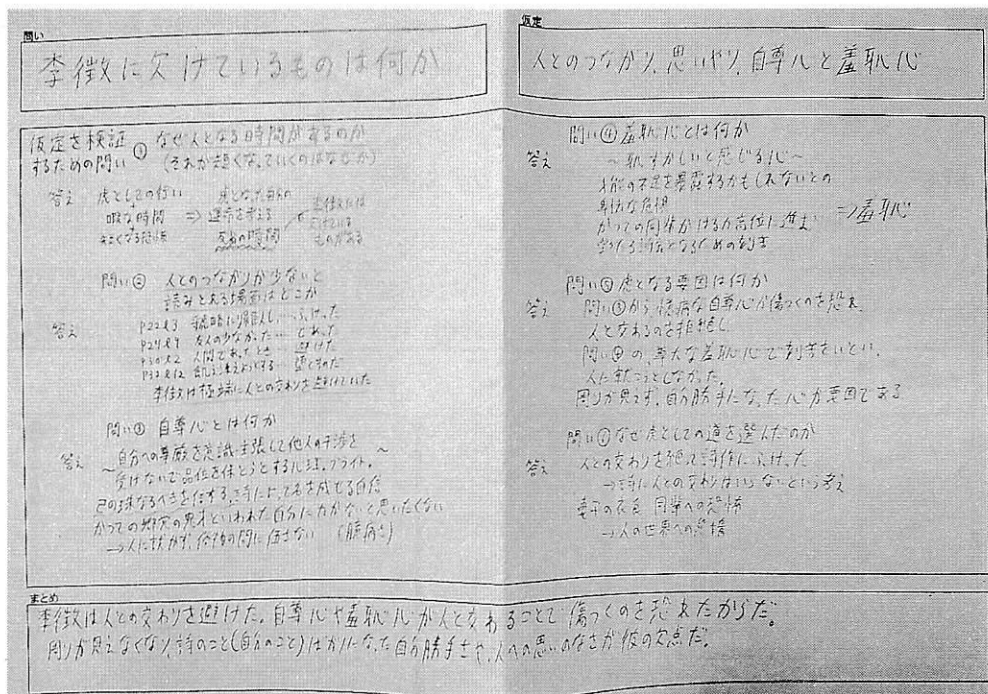 問い
李徴に欠けているものは何か
仮定
人とのつながり、思いやり、自尊心と羞恥心
仮定を検証するための問い
① なぜ人となる時間があるのか
(それが短くなっていくのはなぜか)
答え 虎としての行い
暇な時間
⇒ 運命を考える
反省の時間
李徴には
欠けている
ものがある
問い② 人とのつながりが少ないと
読みとれる場面はどこか
答え
友人の少なかった…
人間であったとき… 避けた
李徴は極端に人との交わりを避けていた
問い③ 自尊心とは何か
答え 自分への尊厳を意識・主張して他人の干渉を
受けないで品位を保とうとする心理。プライド。
己の珠なるべきを信ずる、詩によって名を成せる自信
かつての郷党の鬼才といわれた自分に力がないと思いたくない
(臆病さ)
問い④ 羞恥心とは何か
答え ~恥ずかしいと感じる心~
才能の不足を暴露するかもしれないとの
卑怯な危惧
⇒羞恥心
問い⑤ 虎となる要因は何か
答え 問い③から臆病な自尊心が傷つくのを恐れ、
人と交わるのを拒絶し
問い④の、尊大な羞恥心で刻苦をいとい、
周りが見えず、自分勝手になった心が要因である
なぜ虎としての道を選んだのか
答え 人との交わりを絶って詩作にふけった
→詩に人との交わりはいらないという考え
同輩への恐怖
→人の世界への恐怖
まとめ
李徴は人との交わりを避けた。自尊心や羞恥心が人と交わることで傷つくのを恐れたからだ。
周りが見えなくなり、詩のこと(自分のこと)ばかりになった自分勝手さや、人への思いのなさが彼の欠点だ。